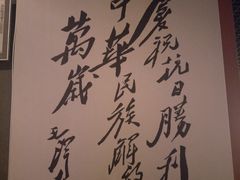 慶祝抗日勝利
中華民族解放
萬歲